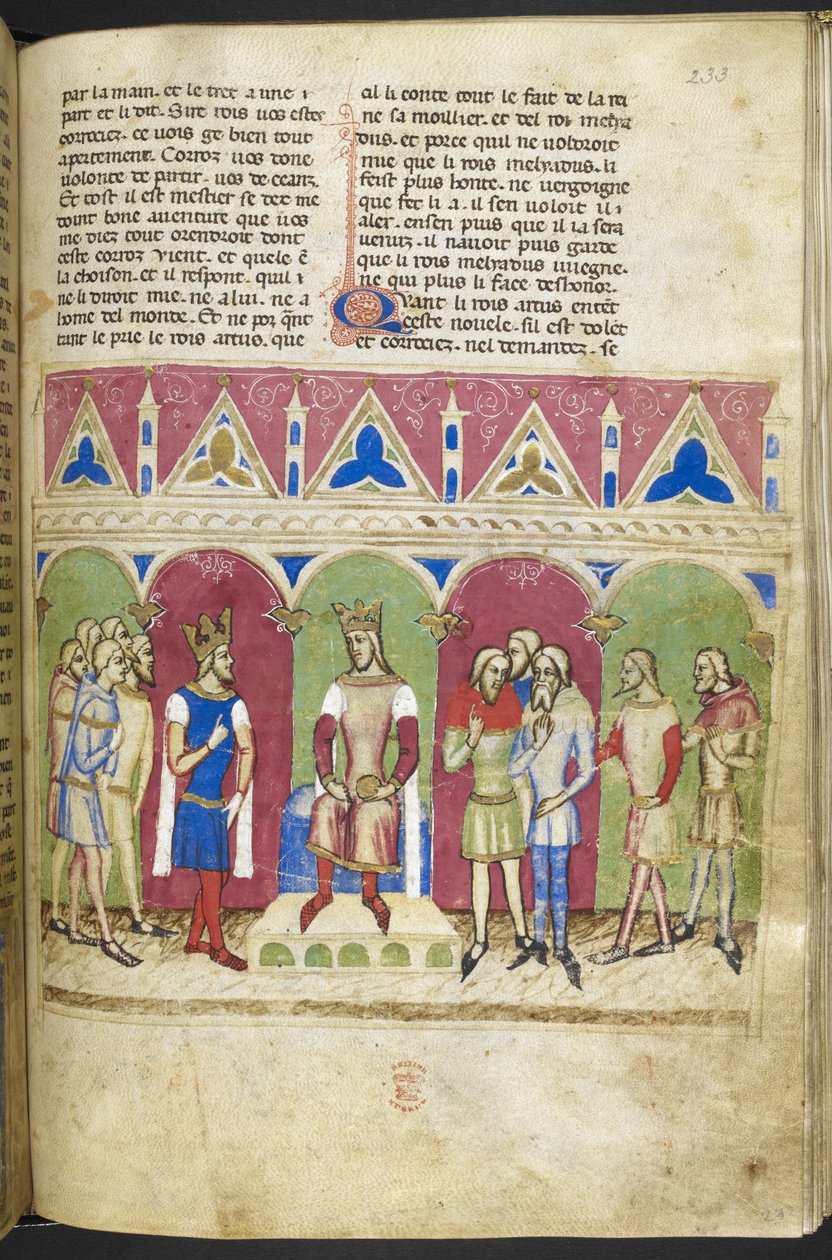 233
par la main. et le tret a une
part et li dit. Sire rois uos estes
correciez. ce uois ge bien tout
apertement. Corroz uos done
uolonte de partir. uos de ceanz.
Et tost il est mestier se dex me
doint bone auenture que uos
me diez tout orendroit dont
ceste corroz vient. et quele ē
la choison. et il respont. quil
ne li diroit mie. ne a lui. ne a
home del monde. Et ne por q̄nt
tant le prie le rois artus. que
cil li conte tout le fait de la rei
ne sa moillier. et del roi melya
dus. et porce quil ne uoldroit
mie que li rois melyadus. li
feist plus honte. ne uergoigne
que fet li a. il sen uoloit
aler. ensen puis que il ia sera
uenuz. il nauoit puis garde
que li rois melyadus uiegne.
ne qui plus li face deshonor.
Quant li rois artus entēt
ceste nouele. sil est dolēt
et correciez. nel demandez. se
BRITISH
MUSEUM